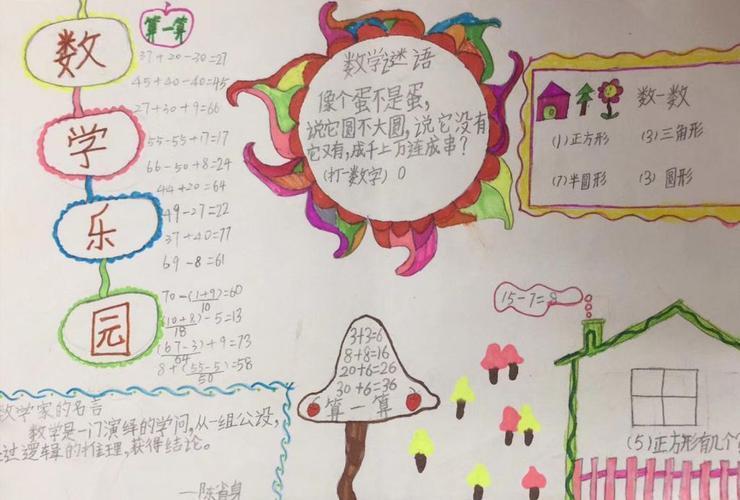 数
学
乐
园
算一算
37+20-30=27
45+40-40=45
27+30+9=66
55-55+17=17
66-50+8=24
44+20=64
49-27=22
37+40=77
69-8=61
70-(1+9)=60
10
(10+8)-5=13
18
(67-3)+9=73
64
8+(55-5)=58
50
数学谜语
像个蛋不是蛋,
说它圆不大圆,说它没有
它又有,成千上万连成串?
(打一数字) 0
数一数
(1)正方形 (3)三角形
(7)半圆形 (3)圆形
15-7=8
3+3=6
8+8=16
20+6=26
30+6=36
算一算
(5)正方形有几个
数学家的名言
数学是一门演绎的学问,从一组公设,
过逻辑的推理,获得结论。
—陈省身